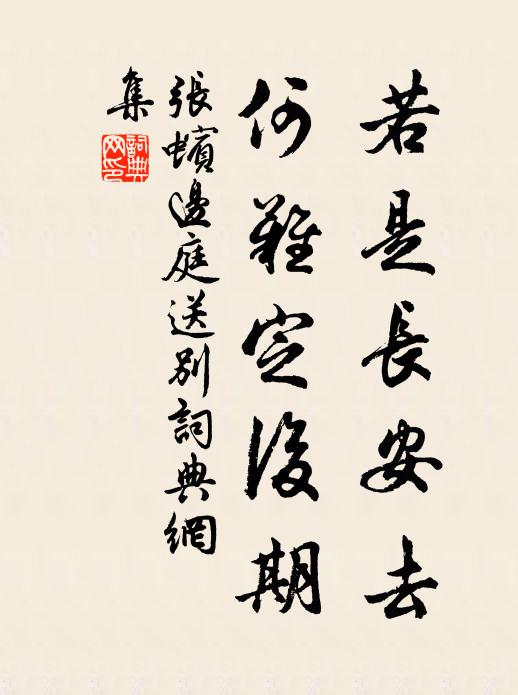 若是長安去
何難定後期
張蠙邊庭送別詞典網
集
詞典網印